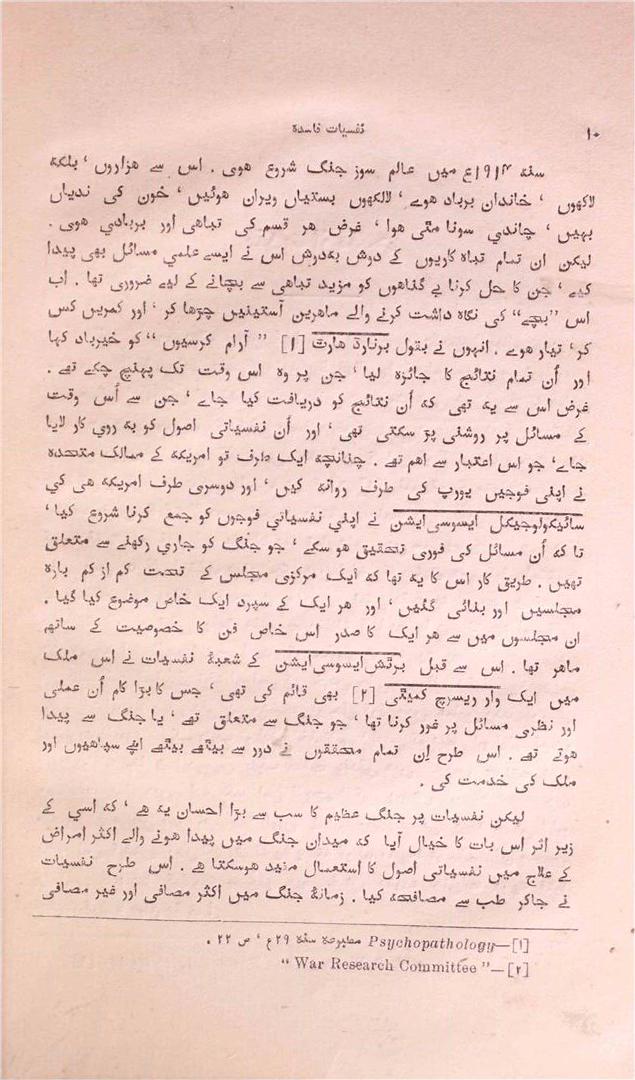 ۱۰
نفسیات فاسدہ
سنہ ۱۹۱۴ع میں عالم سوز جنگ شروع هوی . اس سے هزاروں ' بلکہ
لاکھوں ' خاندان برباد هوے ' لالکھوں بستیاں ویران هوئیں ' خون کی ندیاں
بہیں ' چاندی سونا مٹی هوا ' غرض هر قسم کی تباهی اور بربادی هوی .
لیکن ان تمام تباہ کاریوں کے دوش بدوش اس نے ایسے علمی مسائل بھی پیدا
کیے ' جن کا حل کرنا بے گناهوں کو مزید تباهی سے بچانے کے لیے ضروری تھا . اب
اس ”بچے“ کی نگاہ داشت کرنے والے ماهرین آستینیں چڑھا کر ' اور کمریں کس
کر' تیار هوے . انہوں نے بقول برنارڈ هارٹ [۱] ” آرام کرسیوں “ کو خیرباد کہا
اور اُن تمام نتائج کا جائزہ لیا ' جن پر وہ اس وقت تک پہنچ چکے تھے .
غرض اس سے یہ تھی کہ اُن نتائج کو دریافت کیا جاے ' جن سے اُس وقت
کے مسائل پر روشنی پڑ سکتی تھی ' اور اُن نفسیاتی اصول کو بہ روی کار لایا
جاے' جو اس اعتبار سے اهم تھے . چنانچہ ایک طرف تو امریکہ کے ممالک متحدہ
نے اپنی فوجیں یورپ کی طرف روانہ کیں ' اور دوسری طرف امریکہ هی کی
سائیکولوجیکل ایسوسی ایشن نے اپنی نفسیاتی فوجوں کو جمع کرنا شروع کیا '
تا کہ اُن مسائل کی فوری تحقیق هو سکے ' جو جنگ کو جاری رکھنے سے متعلق
تھیں . طریق کار اس کا یہ تھا کہ ایک مرکزی مجلس کے تحت کم از کم بارہ
مجلسیں اور بنائی گئیں ' اور هر ایک کے سپرد ایک خاص موضوع کیا گیا .
ان مجلسوں میں سے هر ایک کا صدر اس خاص فن کا خصوصیت کے ساتھ
ماهر تھا . اس سے قبل برٹش ایسوسی ایشن کے شعبۂ نفسیات نے اس ملک
میں ایک وار ریسرچ کمیٹی [۲] بھی قائم کی تھی ' جس کا بڑا کام اُن عملی
اور نظری مسائل پر غور کرنا تھا ' جو جنگ سے متعلق تھے ' یا جنگ سے پیدا
هوتے تھے . اس طرح اِن تمام محققوں نے دور سے بیٹھے بیٹھے اپنے سپاهیوں اور
ملک کی خدمت کی .
لیکن نفسیات پر جنگ عظیم کا سب سے بڑا احسان یہ هے ' کہ اسی کے
زیر اثر اس بات کا خیال آیا کہ میدان جنگ میں پیدا هونے والے اکثر امراض
کے علاج میں نفسیاتی اصول کا استعمال مفید هوسکتا هے . اس طرح نفسیات
نے جاکر طب سے مصافحہ کیا . زمانۂ جنگ میں اکثر مصافی اور غیر مصافی
[۱]—Psychopathology مطبوعہ سنہ ۲۹ع ' ص ۲۲ .
[۲]—“ War Research Committee ”